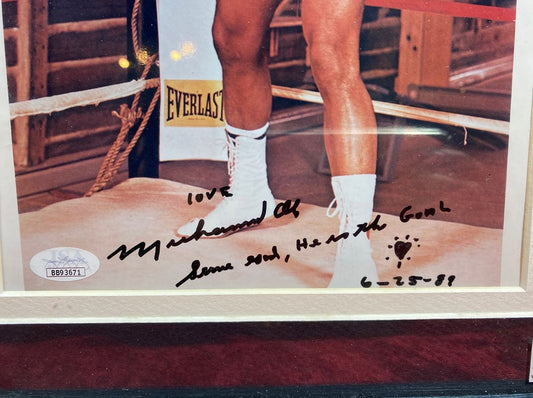 EVERLAST
love
Muhammad Ali
Serve God, He is the Goal
6-25-89
BB93671